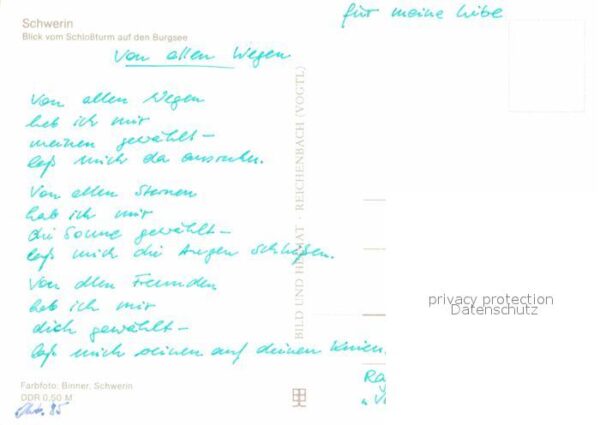 Schwerin
Blick vom Schloßturm auf den Burgsee
für meine
Von allen Wegen
Von allen Wegen
hab ich mir
meinen gewählt –
laß mich da ausruhn.
Von allen Sternen
hab ich mir
die Sonne gewählt –
laß mich die Augen schließen.
Von allen Freunden
hab ich mir
dich gewählt –
laß mich weinen auf deinen Knien.
BILD UND HEIMAT · REICHENBACH (VOGTL)
privacy protection
Datenschutz
Farbfoto: Binner, Schwerin
DDR 0,50 M
85